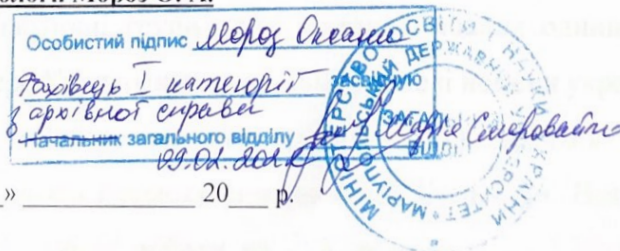 Особистий підпис Мороз Оксани
Фахівець I категорії засвідчую
з архівної справи
Начальник загального відділу Марія
09.02.202
МІНІСТЕРСТВО ОСВІТИ І НАУКИ УКРАЇНИ
МАРІУПОЛЬСЬКИЙ ДЕРЖАВНИЙ УНІВЕРСИТЕТ
ЗАГАЛЬНИЙ
ВІДДІЛ
» 20 р.